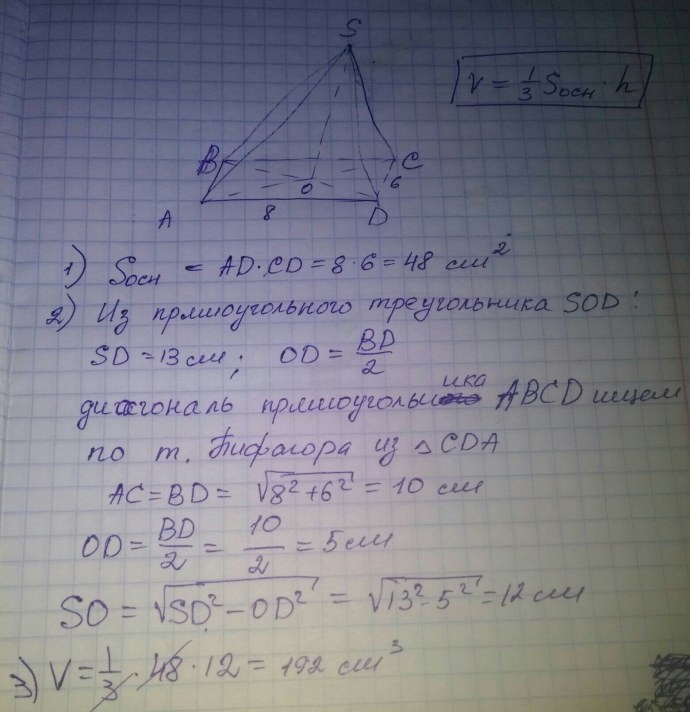 S
V = 1/3 Sосн · h
B
C
O
6
A
8
D
1) Sосн = AD·CD = 8·6 = 48 см²
2) Из прямоугольного треугольника SOD:
SD = 13 см; OD = BD/2
диагональ прямоугольника ABCD ищем
по т. Пифагора из △ CDA
AC = BD = √(8² + 6²) = 10 см
OD = BD/2 = 10/2 = 5 см
SO = √(SD² – OD²) = √(13² – 5²) = 12 см
3) V = 1/3 · 48 · 12 = 192 см³